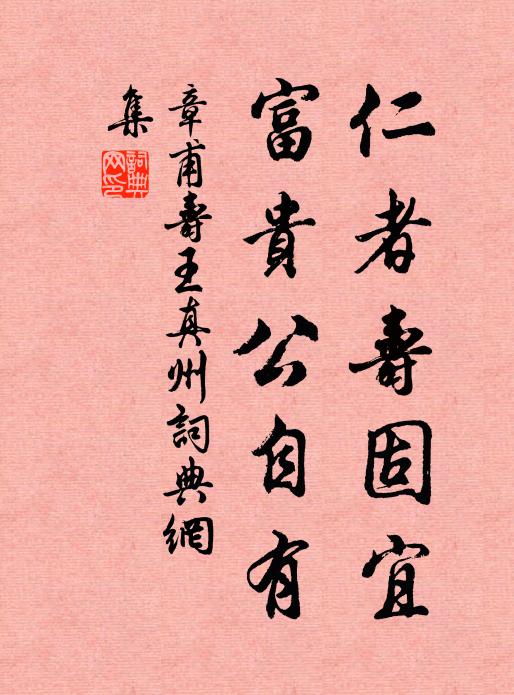 仁者壽固宜
富貴公自有
章甫壽王真州詞典網
集
詞典
网印